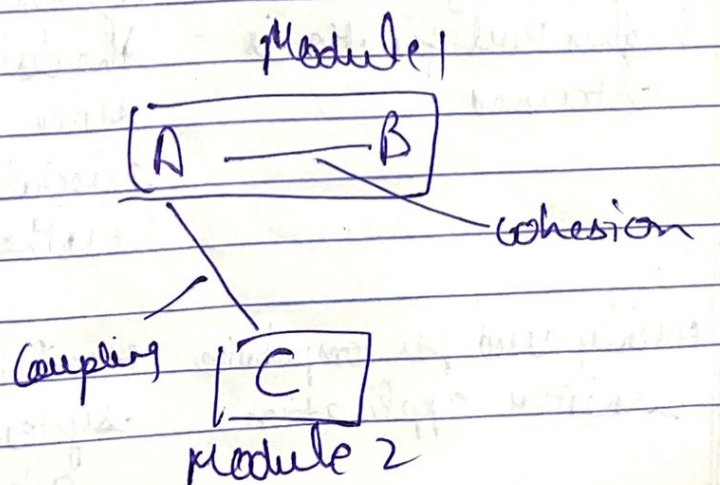 Module 1
A B
cohesion
Coupling
C
Module 2